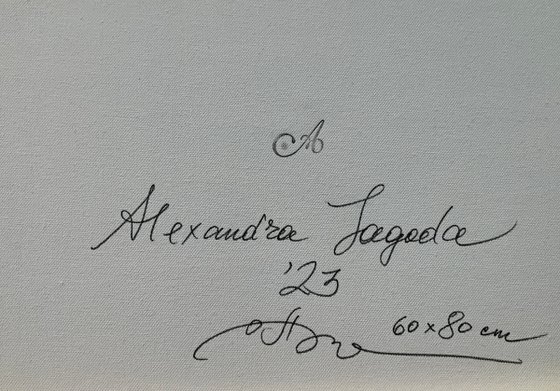 A
Alexandra Jagoda
'23
60x80 cm